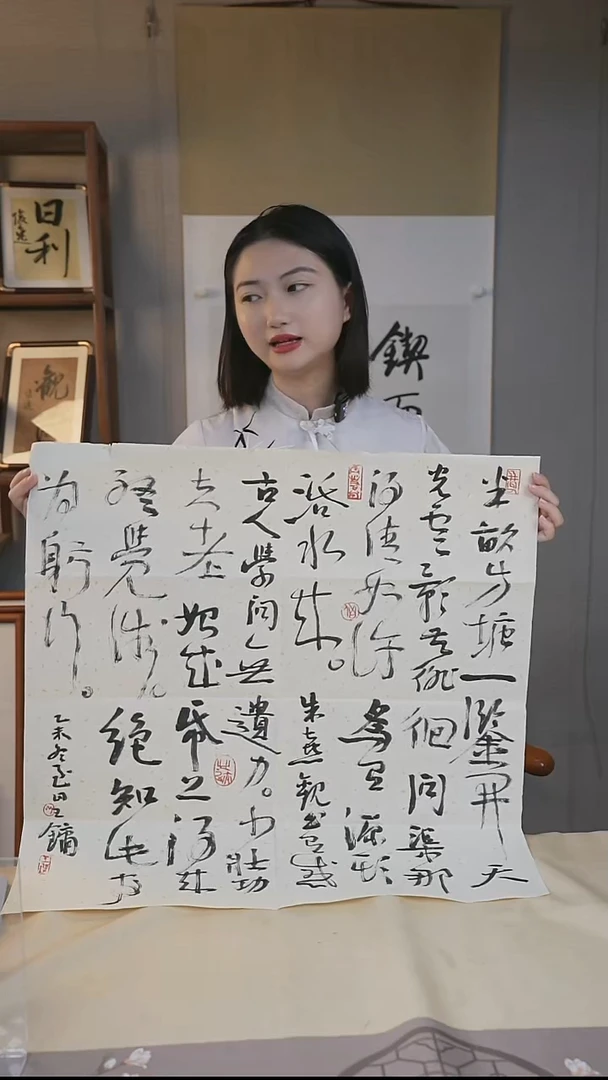 半畝方塘一鑒開天
光雲影共徘徊問渠那
得清如許為有源頭
活水來。朱熹觀書有感
古人學問無遺力。少壯功
夫老始成紙上得來
終覺淺。絕知此事
要躬行。
乙未冬至日王鏞
鍥而
日利
觀